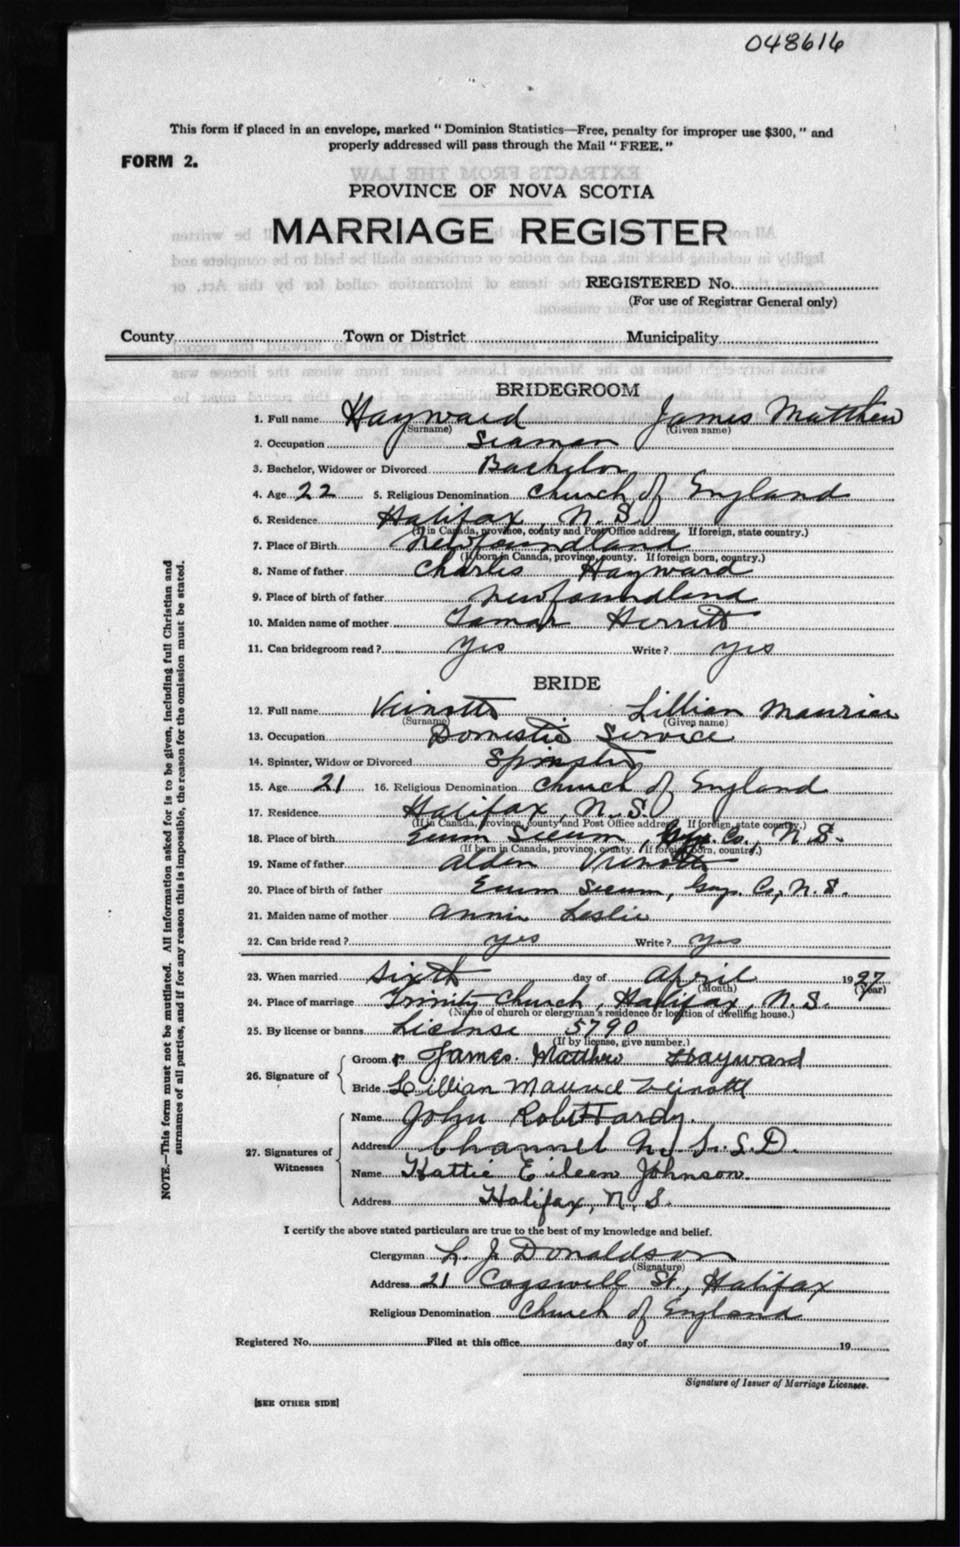 048616
This form if placed in an envelope, marked "Dominion Statistics—Free, penalty for improper use $300," and
properly addressed will pass through the Mail "FREE."
FORM 2.
PROVINCE OF NOVA SCOTIA
MARRIAGE REGISTER
REGISTERED No.
(For use of Registrar General only)
County Town or District Municipality
BRIDEGROOM
1. Full name Hayward James Matthew
(Surname) (Given name)
2. Occupation Seaman
3. Bachelor, Widower or Divorced Bachelor
4. Age 22 5. Religious Denomination Church of England
6. Residence Halifax N.S.
(If in Canada, province, county and Post Office address. If foreign, state country.)
7. Place of Birth Newfoundland
(If born in Canada, province, county. If foreign born, country.)
8. Name of father Charles Hayward
9. Place of birth of father Newfoundland
10. Maiden name of mother Tamar
11. Can bridegroom read? Yes Write? Yes
BRIDE
12. Full name Veinotte Lillian Maurice
(Surname) (Given name)
13. Occupation Domestic Service
14. Spinster, Widow or Divorced Spinster
15. Age 21 16. Religious Denomination Church of England
17. Residence Halifax, N.S.
(If in Canada, province, county and Post Office address. If foreign, state country.)
18. Place of birth Ecum Secum, Guy. Co., N.S.
(If born in Canada, province, county. If foreign born, country.)
19. Name of father Alden Veinotte
20. Place of birth of father Ecum Secum, Guy. Co, N.S.
21. Maiden name of mother Annie Leslie
22. Can bride read? yes Write? yes
23. When married Sixth day of April 1927
(Month) (Year)
24. Place of marriage Trinity Church, Halifax, N.S.
(Name of church or clergyman's residence or location of dwelling house.)
25. By license or banns License 5790
(If by license, give number.)
26. Signature of Groom James Matthew Hayward
Bride Lillian Maurice Veinott
27. Signatures of Witnesses Name John Robt Hardy.
Address Channel
Name Hattie Eileen Johnson.
Address Halifax, N.S.
I certify the above stated particulars are true to the best of my knowledge and belief.
Clergyman L. J. Donaldson
(Signature)
Address 21 Cogswell St., Halifax
Religious Denomination Church of England
Registered No. Filed at this office day of 19
Signature of Issuer of Marriage Licenses.
[SEE OTHER SIDE]
NOTE.—This form must not be mutilated. All information asked for is to be given, including full Christian and
surnames of all parties, and if for any reason this is impossible, the reason for the omission must be stated.